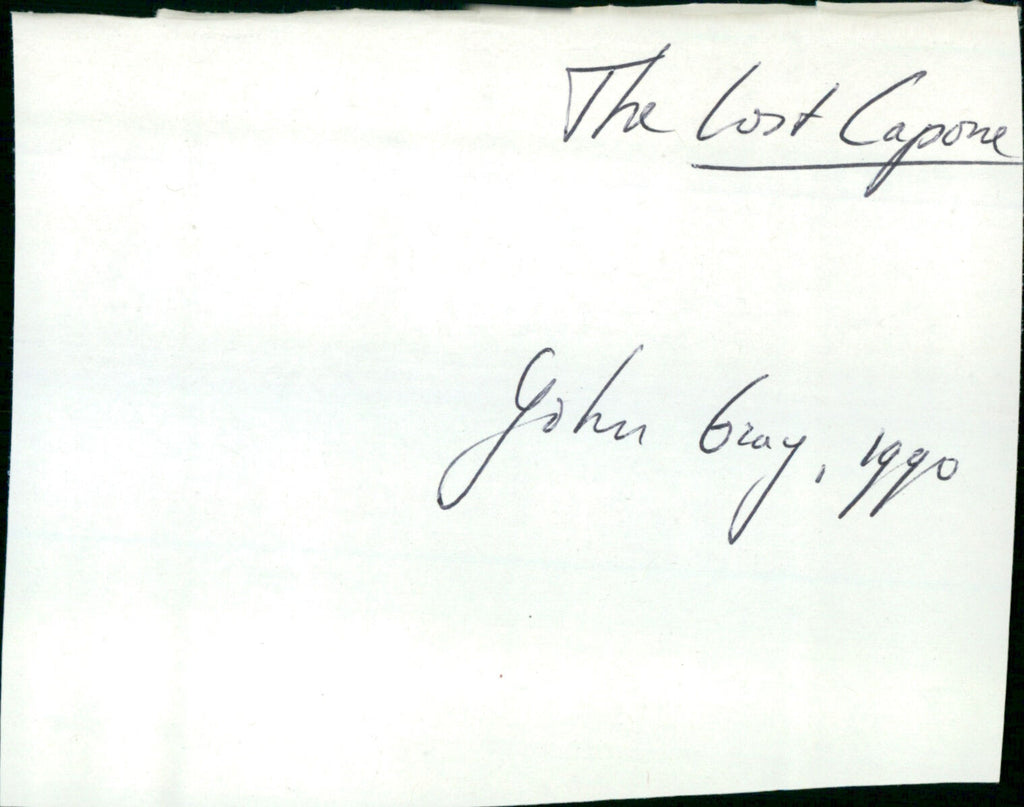 The Lost Capone
John Gray, 1990